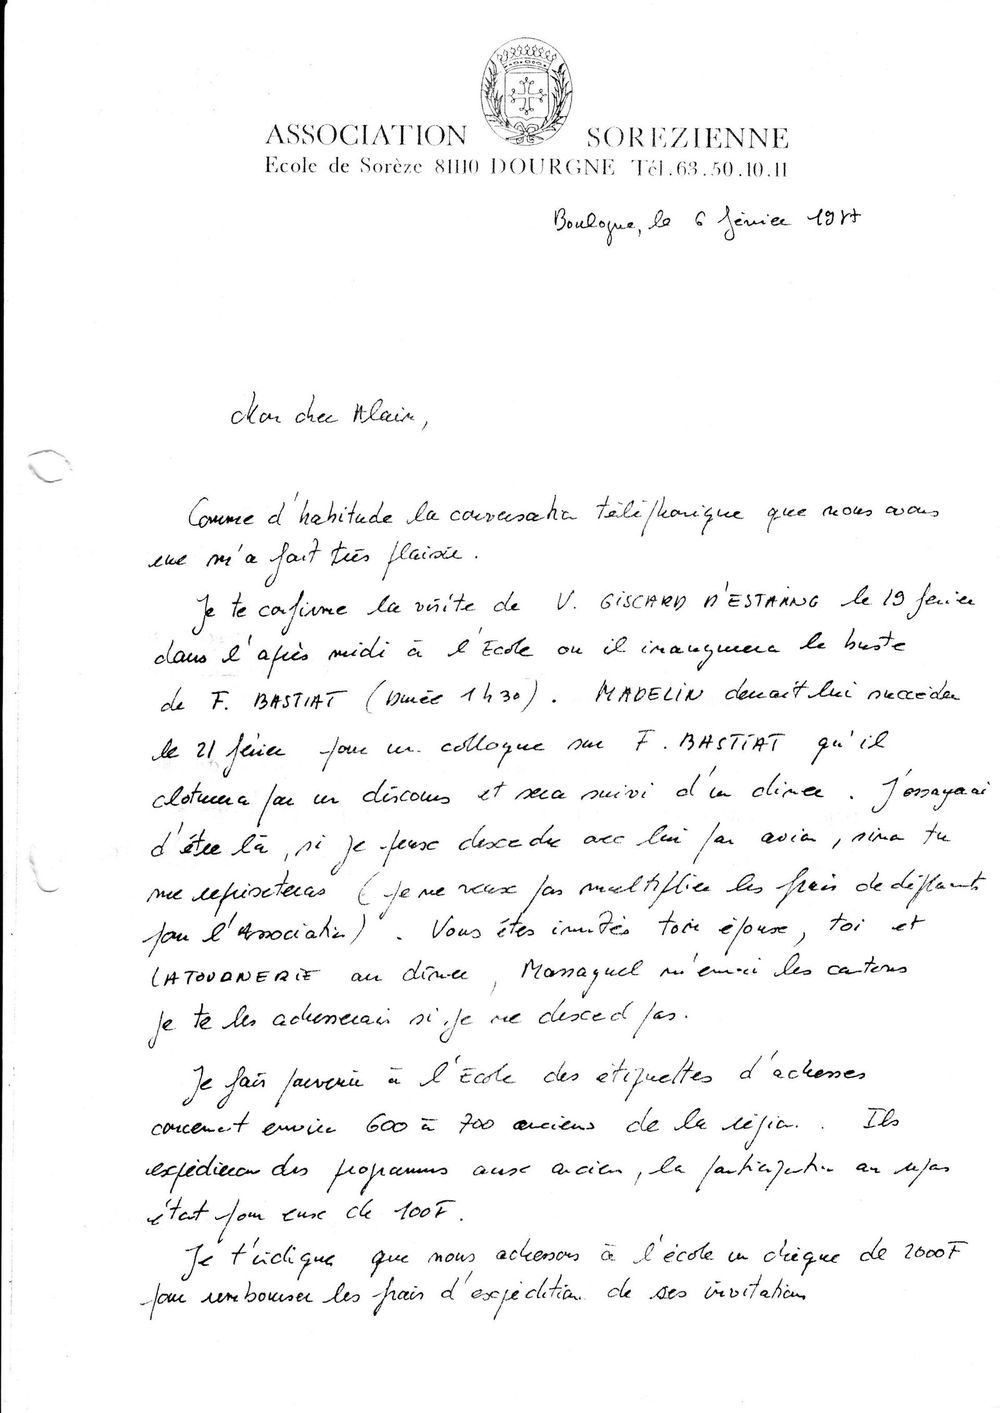 ASSOCIATION SOREZIENNE
Ecole de Sorèze 81110 DOURGNE Tél.63.50.10.11
Boulogne, le 6 février 1987
Mon cher Alain,
Comme d'habitude la conversation téléphonique que nous avons
eue m'a fait très plaisir.
Je te confirme la visite de V. GISCARD D'ESTAING le 19 février
dans l'après midi à l'Ecole ou il inaugurera le buste
de F. BASTIAT (Durée 1h30). MADELIN devrait lui succéder
le 21 février pour un colloque sur F. BASTIAT qu'il
cloturera par un discours et sera suivi d'un diner. J'essayerai
d'être là, si je peux descendre avec lui par avion, sinon tu
me représenteras (je ne veux pas multiplier les frais de déplacements
pour l'Association). Vous êtes invités ton épouse, toi et
LATOURNERIE au diner, Massaguel m'envoi les cartons
je te les adresserais si je ne descend pas.
Je fais parvenir à l'Ecole des étiquettes d'adresses
concernant environ 600 à 700 anciens de la région. Ils
expédieron des programmes aux anciens, la participation au repas
étant pour eux de 100F.
Je t'indique que nous adressons à l'école un chèque de 2000F
pour rembourser les frais d'expédition de ses invitations